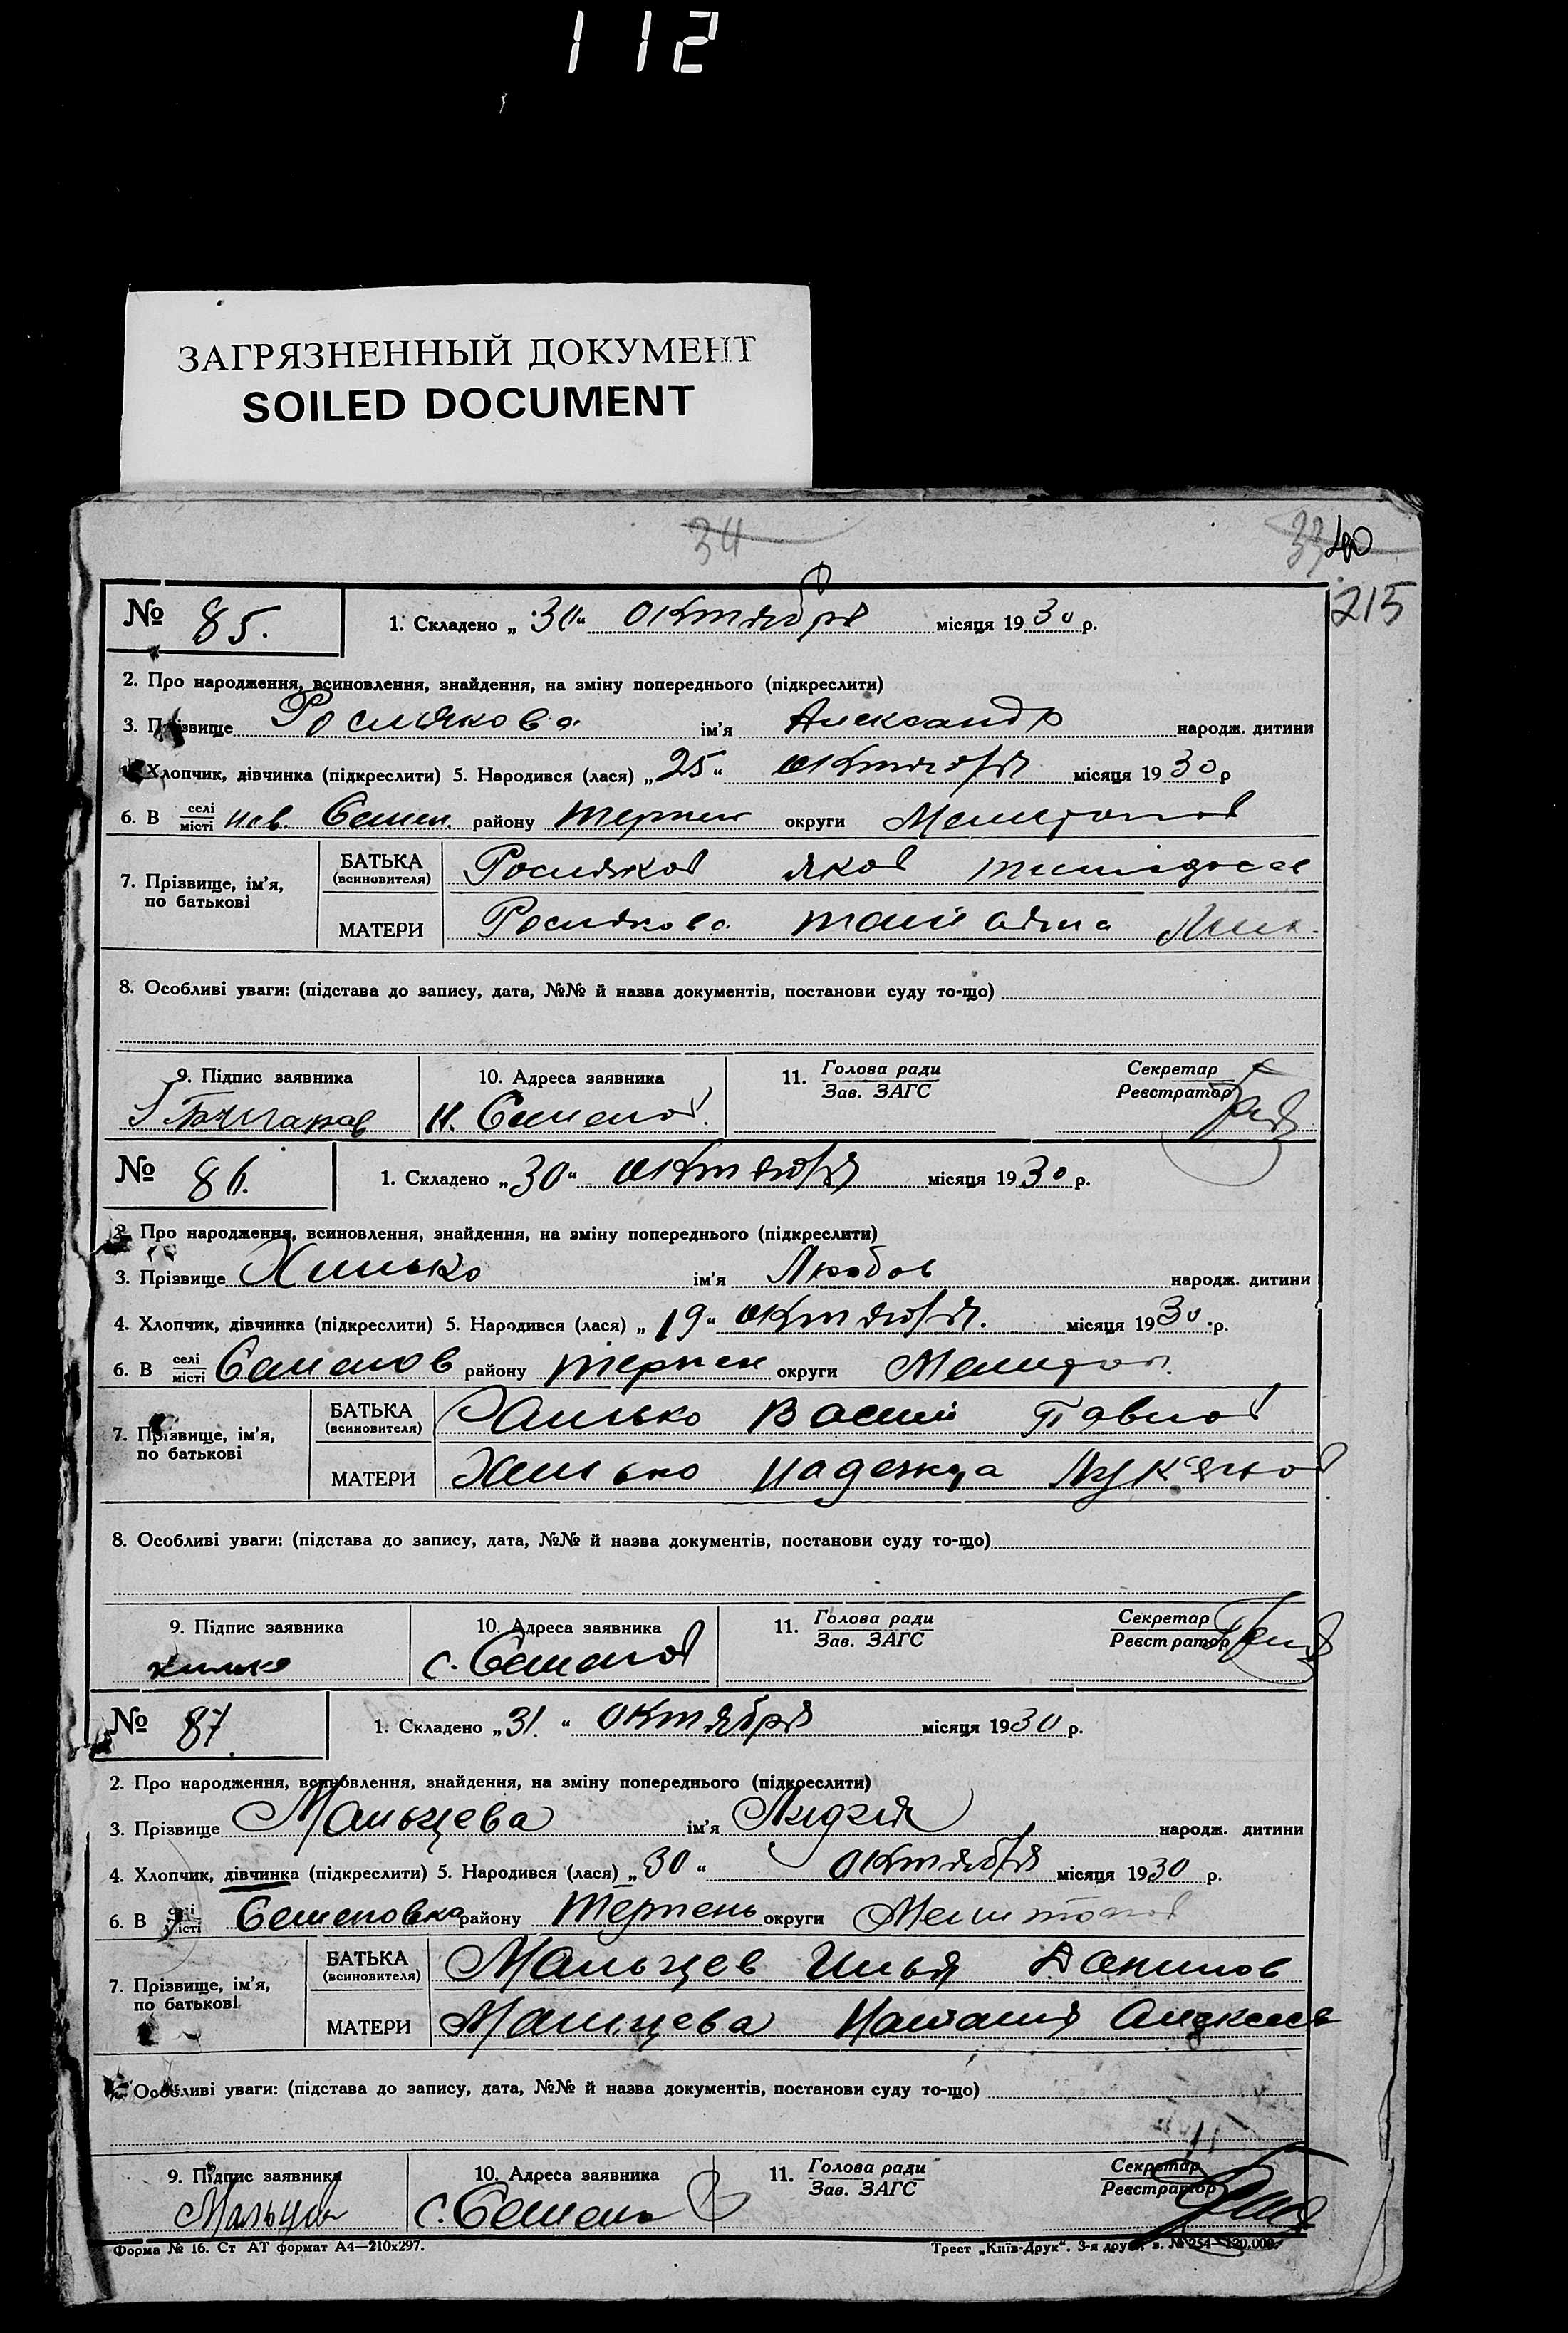 112
ЗАГРЯЗНЕННЫЙ ДОКУМЕНТ
SOILED DOCUMENT
34 33 40
215
№ 85. 1. Складено „30“ октября місяця 1930 р.
2. Про народження, всиновлення, знайдення, на зміну попереднього (підкреслити)
3. Прізвище Рослякова ім'я Александр народж. дитини
Хлопчик, дівчинка (підкреслити) 5. Народився (лася) „25“ октября місяця 1930 р
6. В селі/місті нов. Семен. району Терпен округи Мелитопол
7. Прізвище, ім'я, по батькові БАТЬКА (всиновителя) Росляков Яков
МАТЕРИ Рослякова
8. Особливі уваги: (підстава до запису, дата, №№ й назва документів, постанови суду то-що)
9. Підпис заявника 10. Адреса заявника 11. Голова ради/Зав. ЗАГС Секретар/Реєстратор
Н. Семенов.
№ 86. 1. Складено „30“ октября місяця 1930 р.
2. Про народження, всиновлення, знайдення, на зміну попереднього (підкреслити)
3. Прізвище Хилько ім'я Любов народж. дитини
4. Хлопчик, дівчинка (підкреслити) 5. Народився (лася) „19“ октября. місяця 1930 р.
6. В селі/місті Семенов району Терпен округи Мелитоп.
7. Прізвище, ім'я, по батькові БАТЬКА (всиновителя) Хилько Васили Павлов
МАТЕРИ Хилько Надежда Лукьянов
8. Особливі уваги: (підстава до запису, дата, №№ й назва документів, постанови суду то-що)
9. Підпис заявника 10. Адреса заявника 11. Голова ради/Зав. ЗАГС Секретар/Реєстратор
хилько с. Семенов
№ 87. 1. Складено „31.“ октября місяця 1930 р.
2. Про народження, всиновлення, знайдення, на зміну попереднього (підкреслити)
3. Прізвище Мальцева ім'я Лидия народж. дитини
4. Хлопчик, дівчинка (підкреслити) 5. Народився (лася) „30“ октября місяця 1930 р.
6. В селі/місті Семеновка району Терпень округи Мелитопол
7. Прізвище, ім'я, по батькові БАТЬКА (всиновителя) Мальцев Илья Данилов
МАТЕРИ Мальцева Наталия Алексеев
Особливі уваги: (підстава до запису, дата, №№ й назва документів, постанови суду то-що)
9. Підпис заявника 10. Адреса заявника 11. Голова ради/Зав. ЗАГС Секретар/Реєстратор
Мальцев с. Семен
Форма № 16. Ст АТ формат А4—210х297. Трест „Київ-Друк“. 3-я друк. з. № 254—120.000.